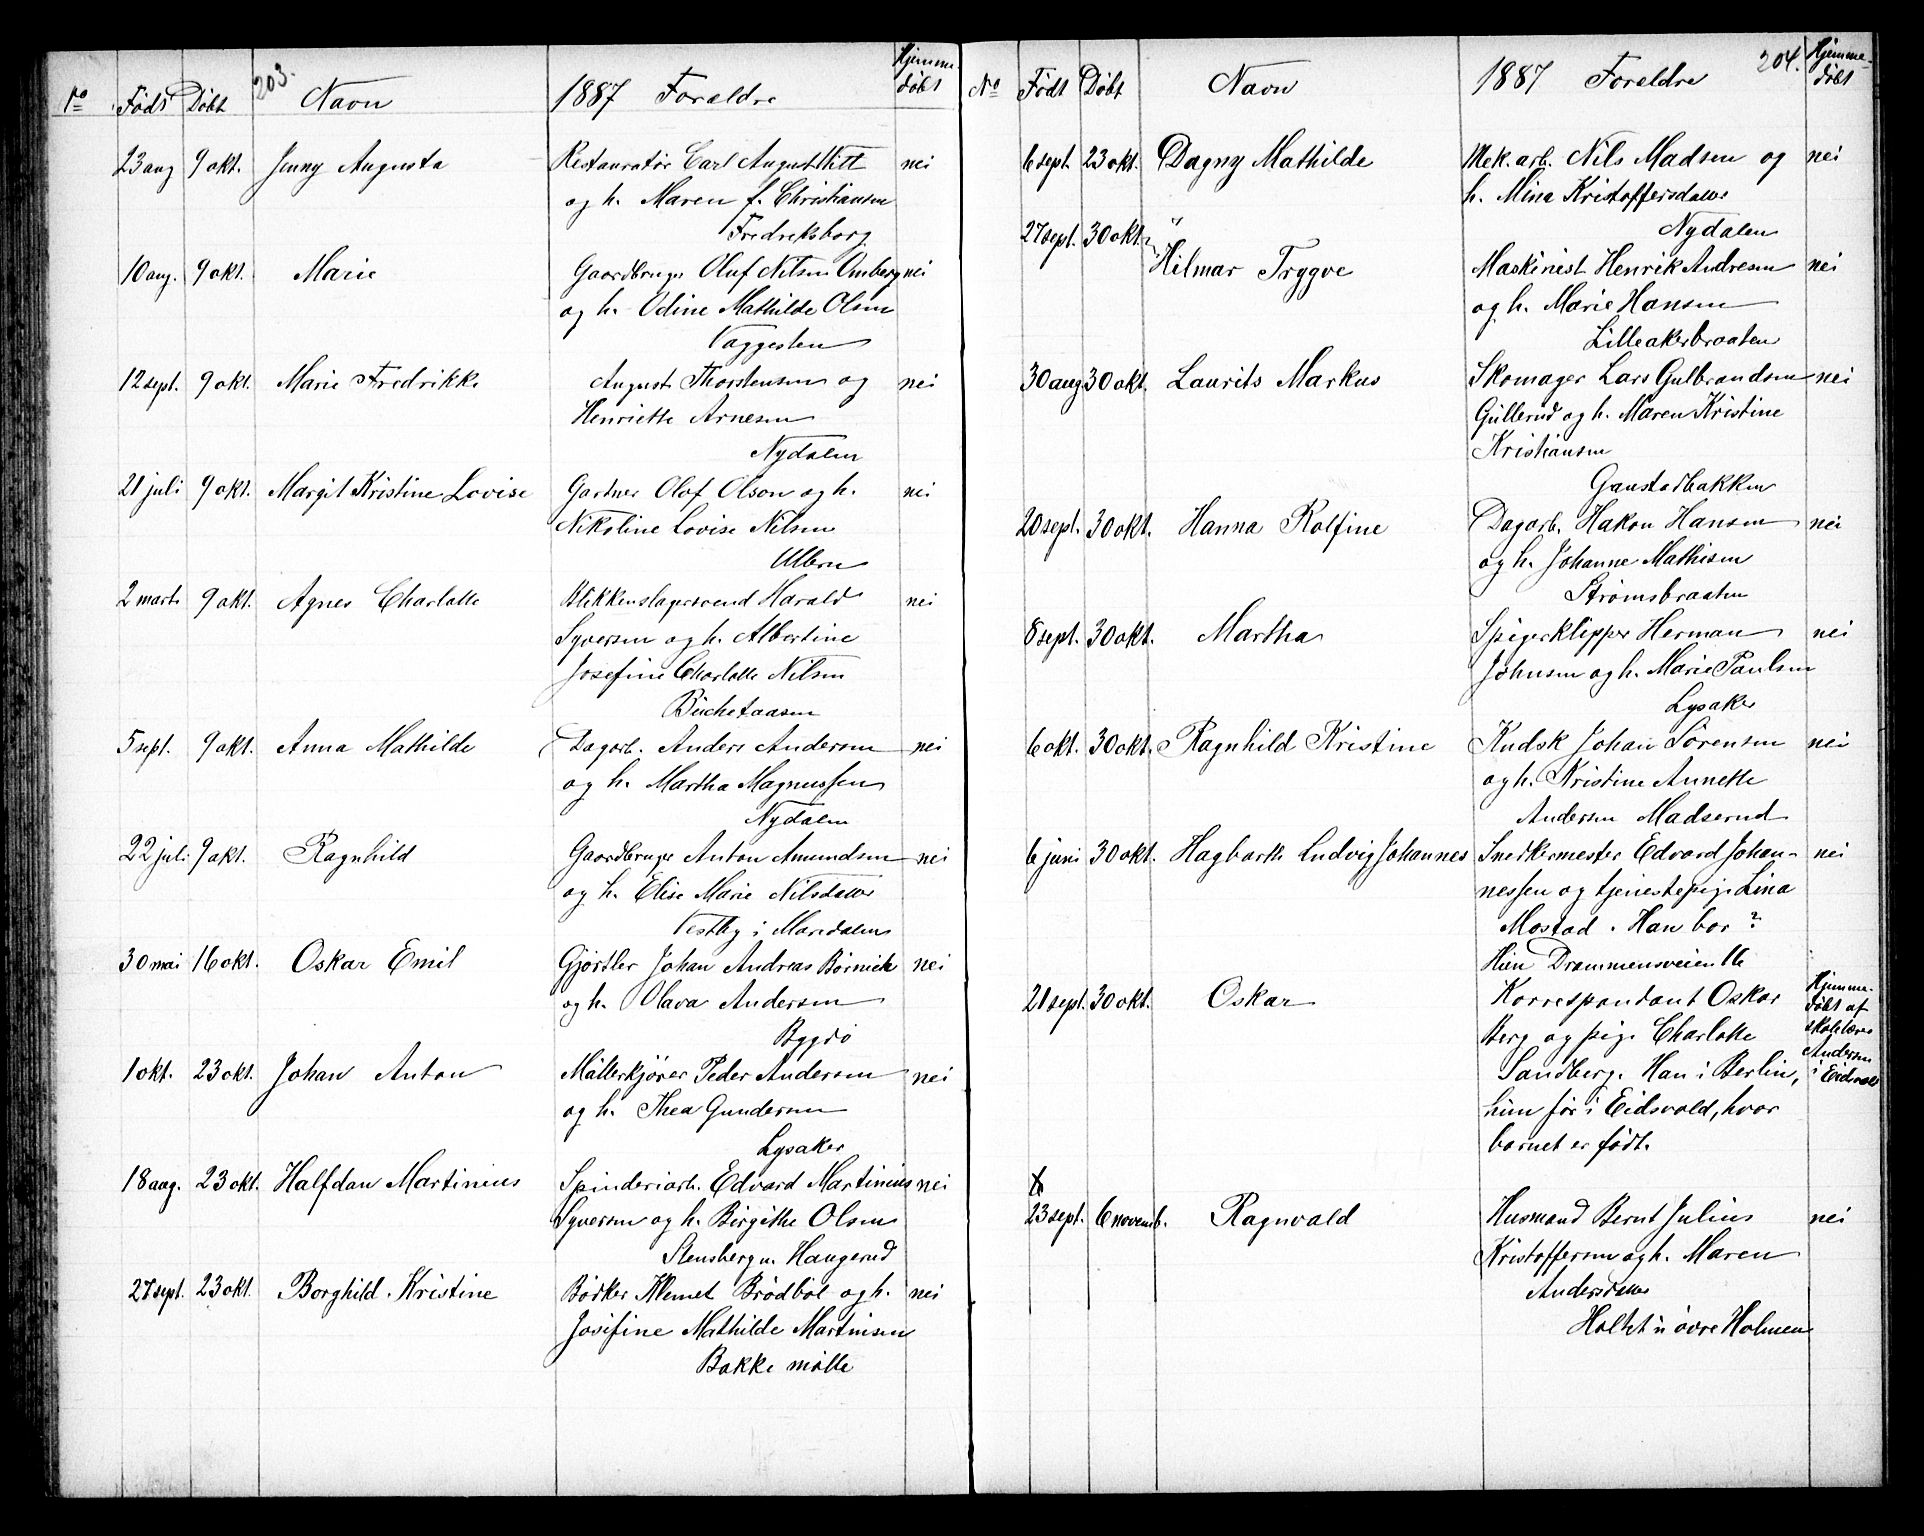 No Födt Döbt 203. Navn 1887 Forældre Hjemme-döbt
23 aug 9 okt. Jenny Augusta Restauratör Carl August Witt nei
og h. Maren f. Christiansen
Fredreksborg
10 aug. 9 okt. Marie Gaardbruger Oluf Nilsen Omberg nei
og h. Odine Mathilde Olsen
Vaggesten
12 sept. 9 okt. Marie Fredrikke August Thorstensen og nei
Henriette Arnesen
Nydalen
21 juli 9 okt. Margit Kristine Lovise Gartner Olof Olson og h. nei
Nikoline Lovise Nilsen
Ullern
2 marts 9 okt. Agnes Charlotte Blikkenslagersvend Harald nei
Syversen og h. Albertine
Josefine Charlotte Nilsen
Büchetaasen
5 sept. 9 okt. Anna Mathilde Dagarb. Anders Andersen nei
og h. Martha Magnussen
Nydalen
22 juli 9 okt. Ragnhild Gaardbruger Anton Amundsen nei
og h. Elise Marie Nilsdatter
Vestby i Maridalen
30 mai 16 okt. Oskar Emil Gjörtler Johan Andreas Börnick nei
og h. Olava Andersen
Bygdö
1 okt. 23 okt. Johan Anton Möllerkjörer Peder Andersen nei
og h. Thea Gundersen
Lysaker
18 aug. 23 okt. Halfdan Martinius Spinderiarb. Edvard Martinius nei
Syversen og h. Birgithe Olsen
Stensberg u. Haugerud
27 sept. 23 okt. Borghild Kristine Bödker Klemet Brödböl og h. nei
Josefine Mathilde Martinsen
Bakke mölle
No Födt Döbt Navn 1887 Foreldre 204. Hjemme-döbt
6 sept. 23 okt. Dagny Mathilde Mek. arb. Nils Madsen og nei
h. Mina Kristoffersdatter
Nydalen
27 sept. 30 okt. Hilmar Tryggve Maskinist Henrik Andresen nei
og h. Marie Hansen
Lilleakerbraaten
30 aug 30 okt. Laurits Markus Skomager Lars Gulbrandsen nei
Gullerud og h. Maren Kristine
Kristiansen
Gaustadbakken
20 sept. 30 okt. Hanna Rolfine Dagarb. Hakon Hansen nei
og h. Johanne Mathisen
Strömsbraaten
8 sept. 30 okt. Martha Spigerklipper Herman nei
Johnsen og h. Marie Paulsen
Lysaker
6 okt. 30 okt. Ragnhild Kristine Kudsk Johan Sörensen nei
og h. Kristine Annette
Andersen Madserud
6 juni 30 okt. Hagbarth Ludvig Johannes Snedkermester Edvard Johan- nei
nessen og tjenestepige Lina
Mostad. Han bor?
Hun Drammensveien
21 sept. 30 okt. Oskar Korrespondant Oskar Hjemme-
Berg og pige Charlotte döbt af
Sandberg. Han i Berlin, skolelærer
hun för i Eidsvold, hvor Andersen
barnet er födt. i Eidsvold
23 sept. 6 novemb. Ragnvald Husmand Bernt Julius nei
Kristoffersen og h. Maren
Andersdatter
Holtet u övre Holmen